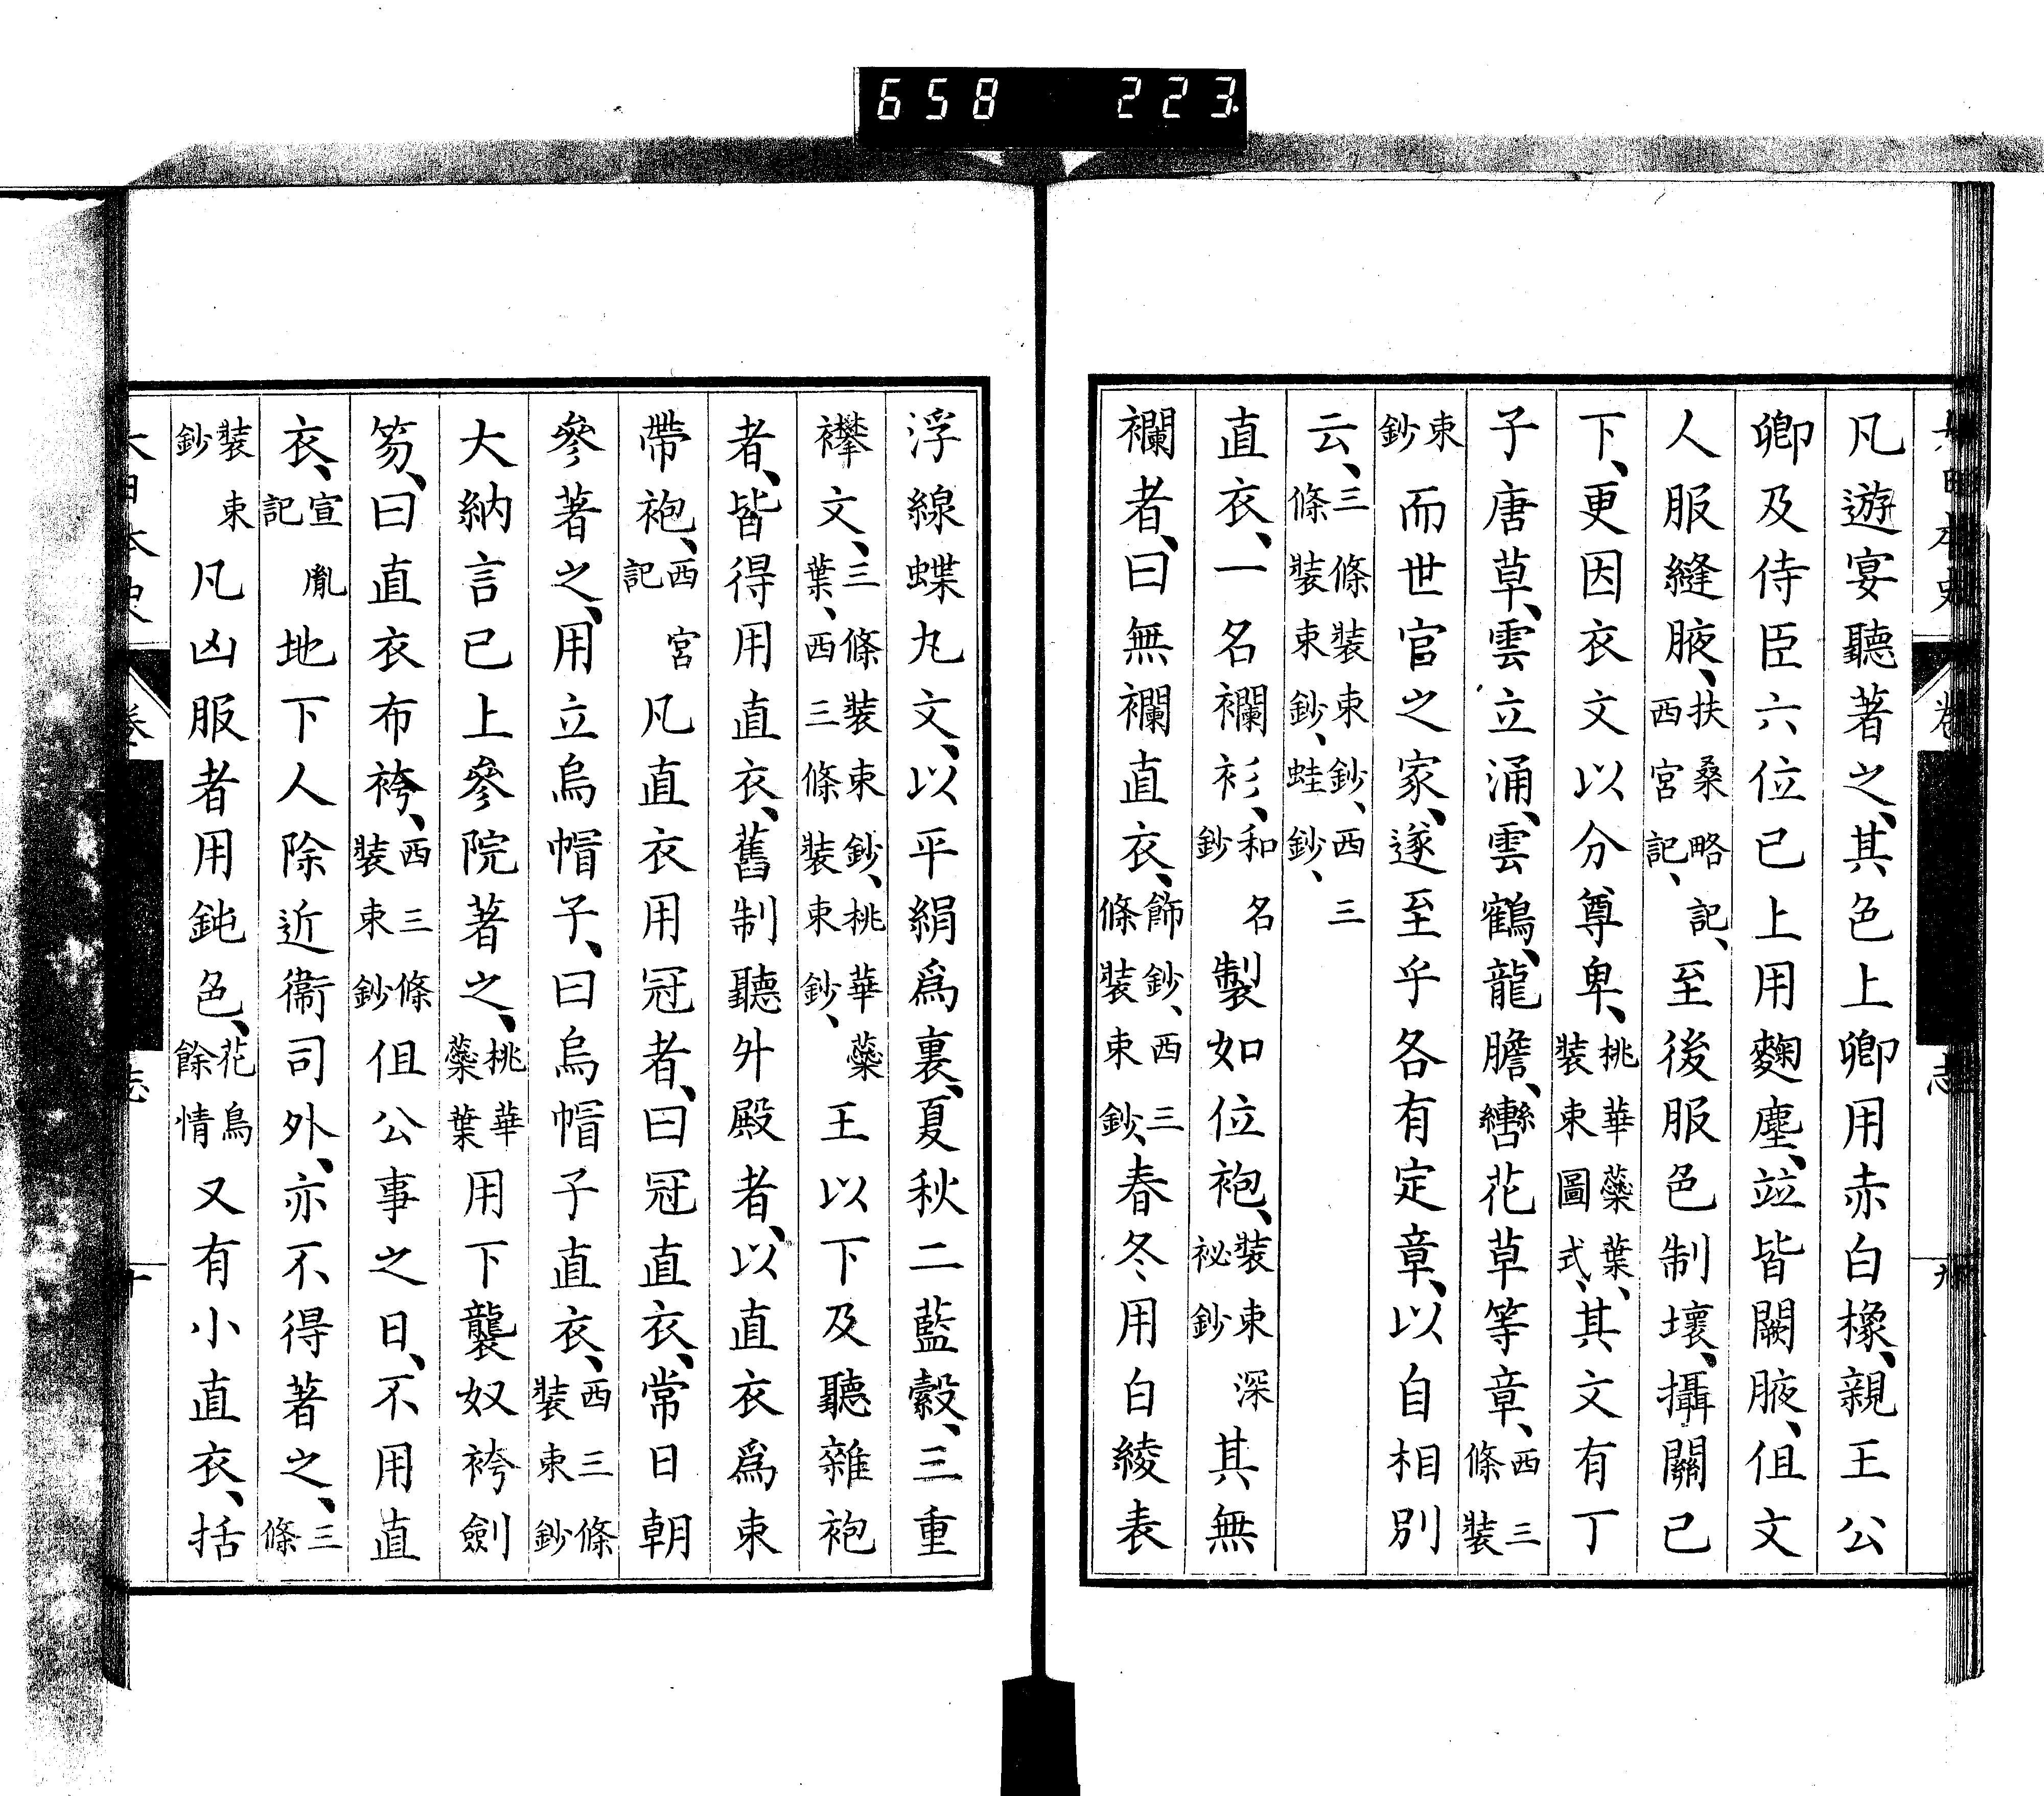 658 223
凡遊宴聽著之、其色上卿用赤白橡、親王公
卿及侍臣六位已上用麴塵、竝皆闕腋、但文
人服縫腋、扶桑略記、西宮記、至後服色制壞、攝關已
下、更因衣文以分尊卑、桃華蘂葉、裝束圖式、其文有丁
子唐草、雲立涌、雲鶴、龍膽、轡花草等章、西三條裝
束鈔而世官之家、遂至乎各有定章、以自相別
云、三條裝束鈔、西三條裝束鈔、蛙鈔、
直衣、一名襴衫、和名鈔製如位袍、裝束祕鈔深其無
襴者、曰無襴直衣、飾鈔、西三條裝束鈔、春冬用白綾表
浮線蝶丸文、以平絹爲裏、夏秋二藍縠、三重
襷文、三條裝束鈔、桃華蘂葉、西三條裝束鈔、王以下及聽雜袍
者、皆得用直衣、舊制聽升殿者、以直衣爲束
帶袍、西宮記凡直衣用冠者、曰冠直衣、常日朝
參著之、用立烏帽子、曰烏帽子直衣、西三條裝束鈔
大納言已上參院著之、桃華蘂葉用下襲奴袴劍
笏、曰直衣布袴、西三條裝束鈔但公事之日、不用直
衣、宣胤記地下人除近衞司外、亦不得著之、三條
裝束鈔凡凶服者用鈍色、花鳥餘情又有小直衣、括